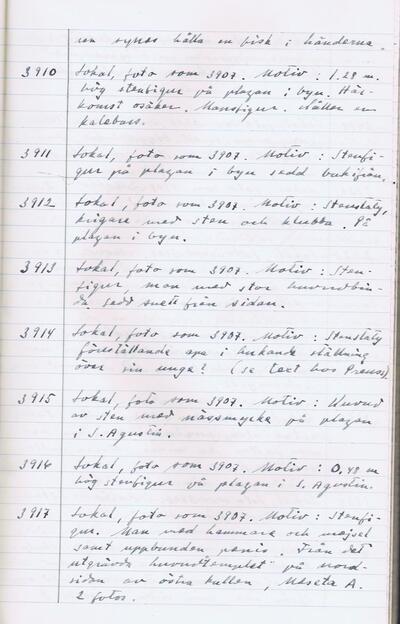 ren synes hålla en fisk i händerna.
3910 Lokal, foto som 3907. Motiv: 1.28 m.
hög stenfigur på plazan i byn. Här-
komst osäker. Mansfigur. Håller en
kalebass.
3911 Lokal, foto som 3907. Motiv: Stenfi-
gur på plazan i byn sedd bakifrån.
3912 Lokal, foto som 3907. Motiv: Stenstaty,
krigare med sten och klubba. På
plazan i byn.
3913 Lokal, foto som 3907. Motiv: Sten-
figur, man med stor huvudbin-
da. Sedd snett från sidan.
3914 Lokal, foto som 3907. Motiv: Stenstaty
föreställande apa i hukande ställning
över sin unge? (se text hos Preuss).
3915 Lokal, foto som 3907. Motiv: Huvud
av sten med nässmycke på plazan
i S. Agustin.
3916 Lokal, foto som 3907. Motiv: 0,48 m
hög stenfigur på plazan i S. Agustin.
3917 Lokal, foto som 3907. Motiv: Stenfi-
gur. Man med hammare och mejsel
samt uppbunden penis. Från det
utgrävda "huvudtemplet" på nord-
sidan av östra kullen, Meseta A.
2 foton.